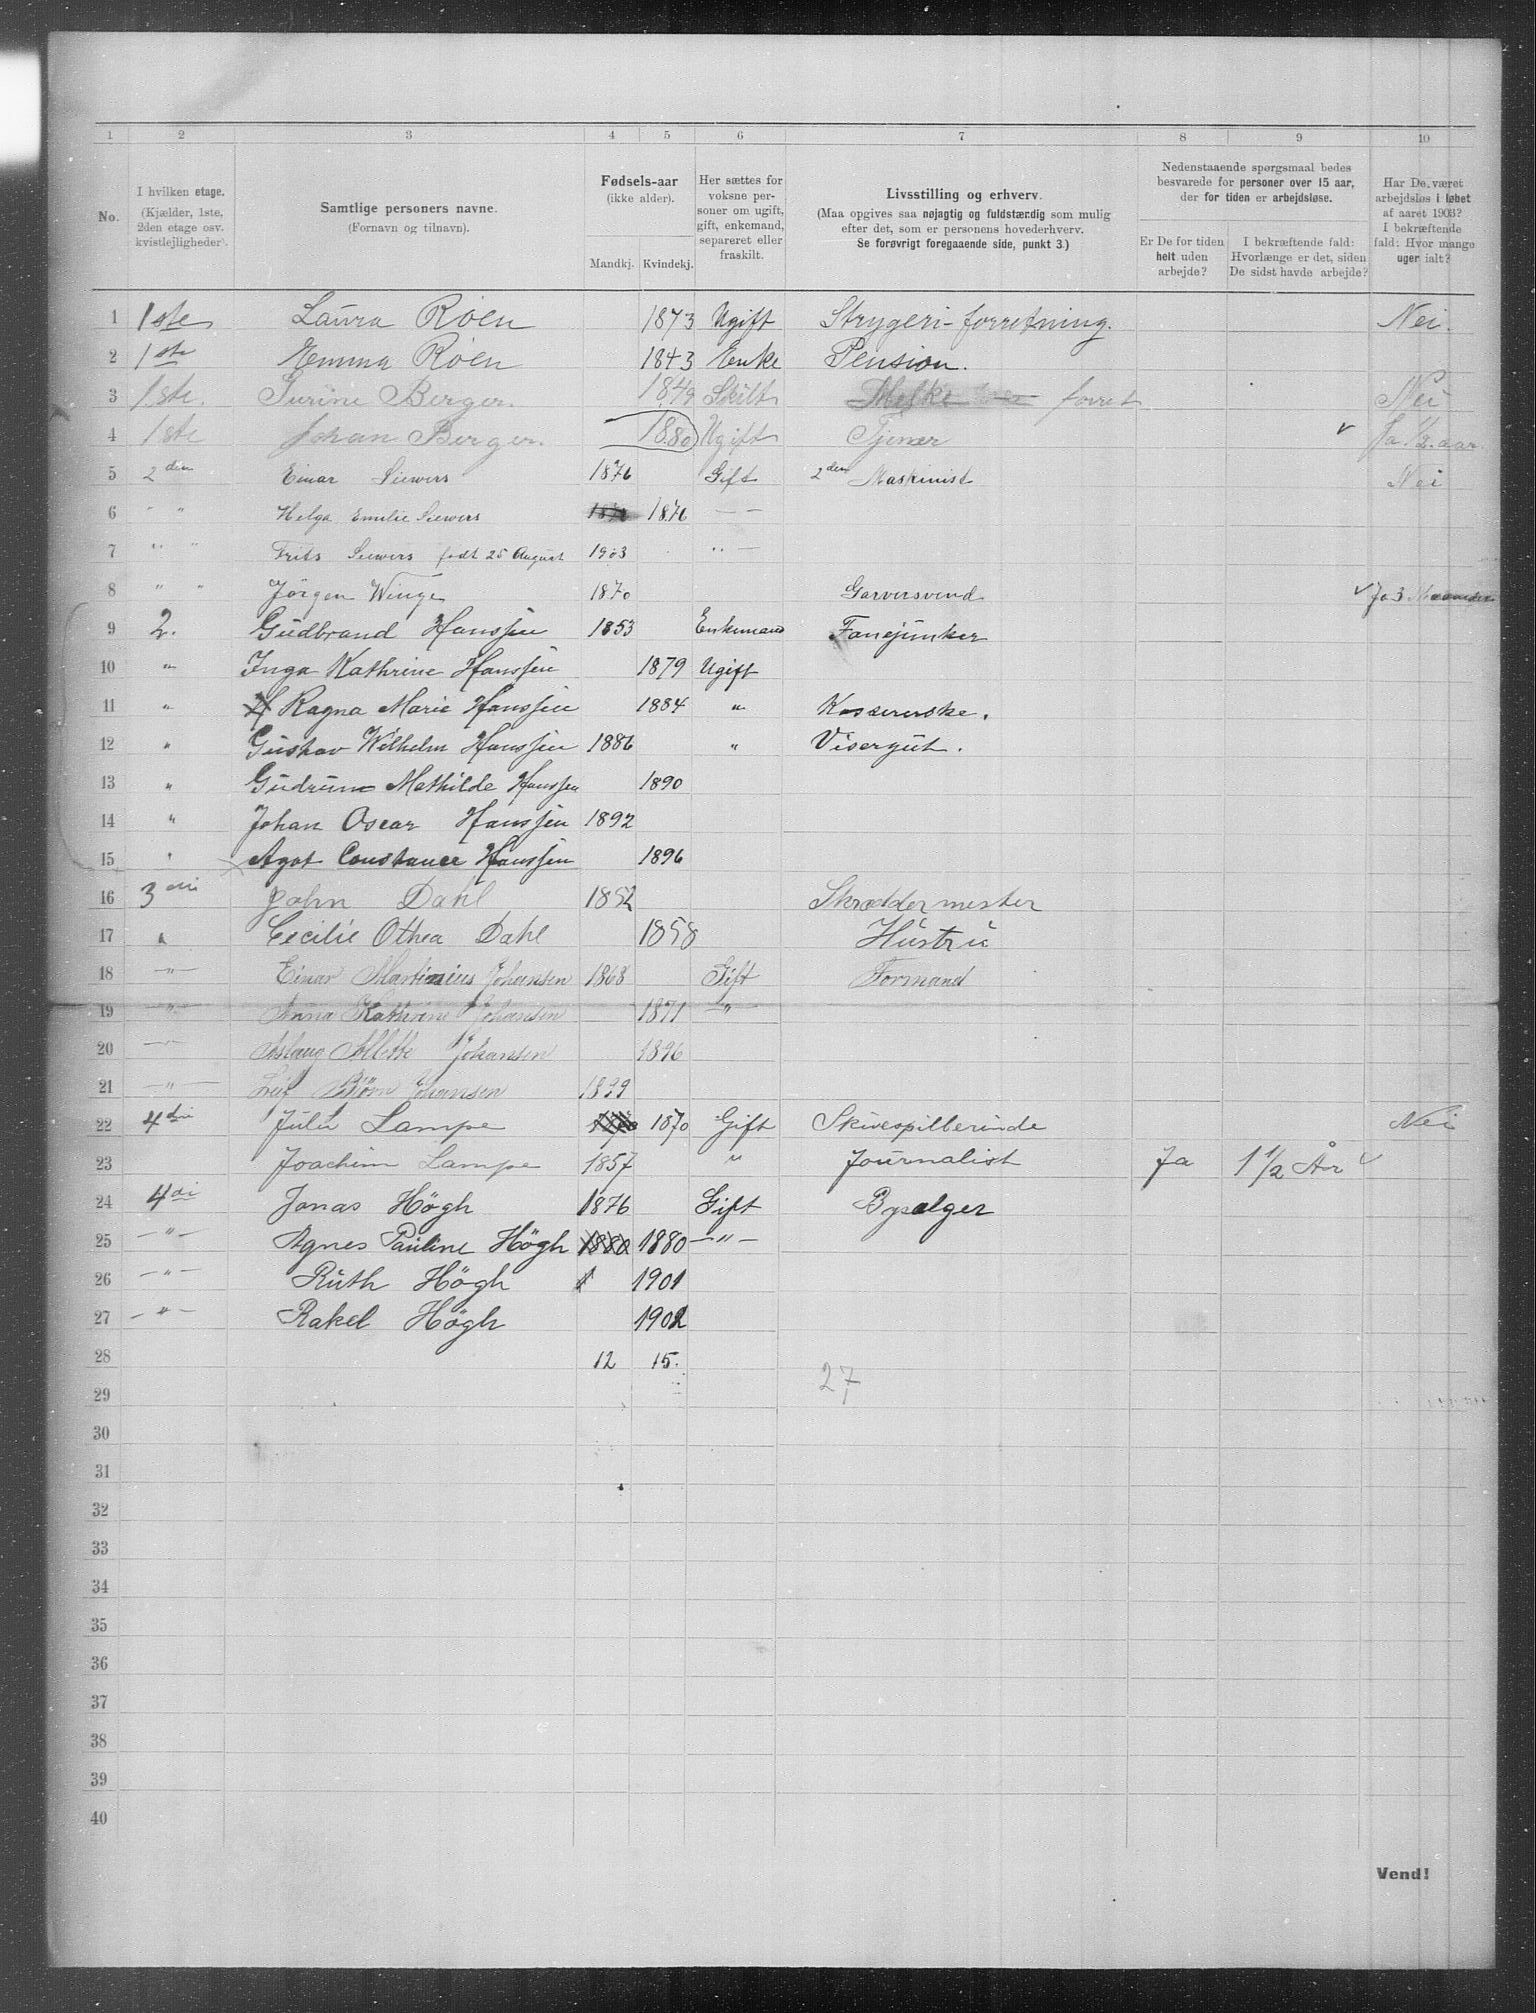 1 2 3 4 5 6 7 8 9 10
No.
I hvilken etage.
(Kjælder, 1ste,
2den etage osv.
kvistlejligheder).
Samtlige personers navne.
(Fornavn og tilnavn).
Fødsels-aar
(ikke alder).
Mandkj. Kvindekj.
Her sættes for
voksne per-
soner om ugift,
gift, enkemand,
separeret eller
fraskilt.
Livsstilling og erhverv.
(Maa opgives saa nøjagtig og fuldstændig som mulig
efter det, som er personens hovederhverv.
Se forøvrigt foregaaende side, punkt 3.)
Nedenstaaende spørgsmaal bedes
besvarede for personer over 15 aar,
der for tiden er arbejdsløse.
Er De for tiden
helt uden
arbejde?
I bekræftende fald:
Hvorlænge er det, siden
De sidst havde arbejde?
Har De været
arbejdsløs i løbet
af aaret 1903?
I bekræftende
fald: Hvor mange
uger ialt?
1 1ste Laura Röen 1873 Ugift Strygeri-forretning. Nei.
2 1ste Emma Röen 1843 Enke Pension.
3 1ste. Turine Berger. 1849 Skilt forret Nei
4 1ste Johan Berger. 1880 Ugift Tjener Ja 1/2 aar
5 2den Einar Siewers 1876 Gift 2den Maskinist Nei
6 " " Helga Emilie Siewers 1876 — —
7 " " Frits Siewers født 25 August 1903 " —
8 " " Jørgen Winge 1870 Garversvend Ja 3 Maaneder
9 2. Gudbrand Hanssen 1853 Enkemand Fanejunker
10 " Inga Kathrine Hanssen 1879 Ugift
11 " Ragna Marie Hanssen 1884 " Kassererske.
12 " Gustav Wilhelm Hanssen 1886 " Visergut.
13 " Gudrun Mathilde Hanssen 1890
14 " Johan Oscar Hanssen 1892
15 " Agot Constance Hanssen 1896
16 3die John Dahl 1852 Skræddermester
17 " Cecilie Othea Dahl 1858 Hustru
18 —"— Einar Martinius Johansen 1868 Gift Formand
19 —"— Anna Kathrine Johansen 1871 —"—
20 —"— Aslaug Johansen 1896
21 —"— Leif Björn Johansen 1899
22 4die Julie Lampe 1870 Gift Skuespillerinde Nei
23 Joachim Lampe 1857 " Journalist Ja 1 1/2 År
24 4di Jonas Högh 1876 Gift Bysælger
25 —"— Agnes Pauline Högh 1880 1880 —"—
26 —"— Ruth Högh 1901
27 —"— Rakel Högh 1902
28 12 15.
27
29
30
31
32
33
34
35
36
37
38
39
40
Vend!